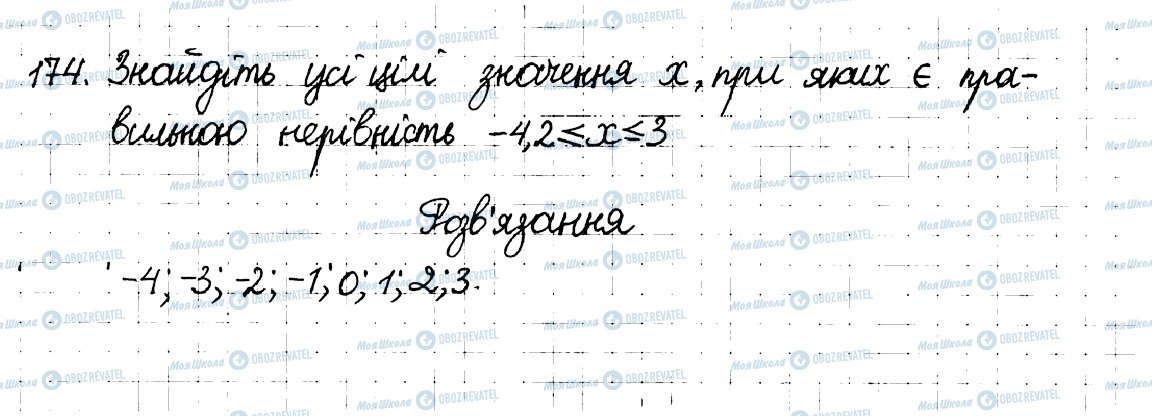 174. Знайдіть усі цілі значення x, при яких є пра-
вильною нерівність -4,2≤x≤3
Розв'язання
-4; -3; -2; -1; 0; 1; 2; 3.